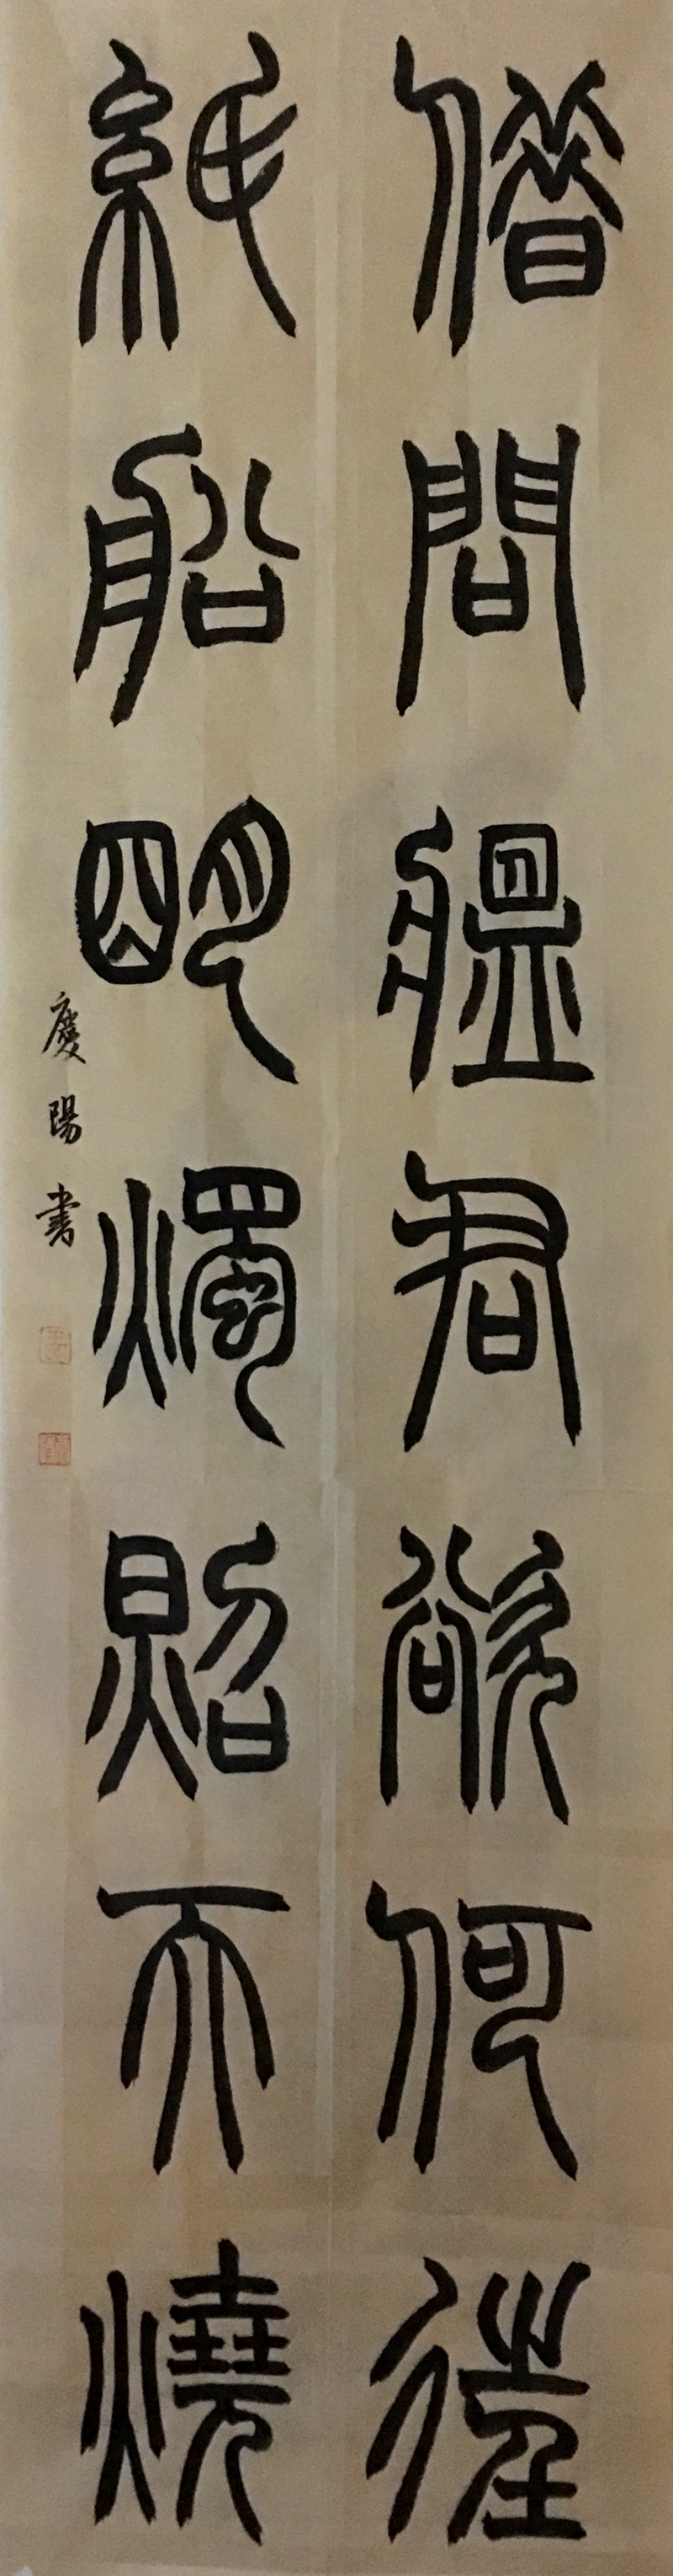 借問瘟君欲何往
紙船明燭照天燒
慶陽書